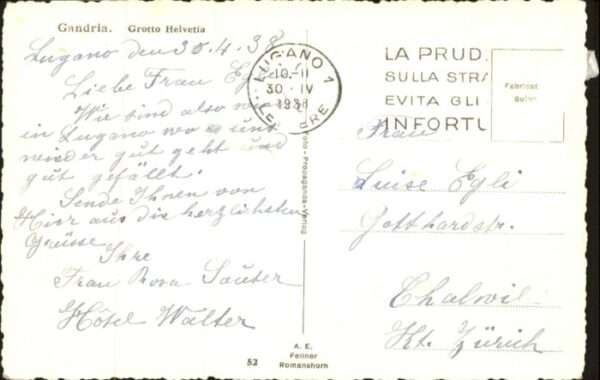 Gandria. Grotto Helvetia
Lugano den 30.4.38
Liebe Frau Egli
Wir sind also wieder
in Lugano wo es uns
wieder gut geht und
gut gefällt.
Sende Ihnen von
Hier aus die herzlichsten
Grüsse
Ihre
Frau Rosa Sauter
Hôtel Walter
LUGANO 1
10-11
30 IV
1938
LA PRUD
SULLA STRA
EVITA GLI
INFORTU
Fabricat
Suisse
Foto-Propaganda-Verlag
A. E.
Fellner
Romanshorn
52
Frau
Luise Egli
Gotthardstr.
Thalwil
Kt. Zürich